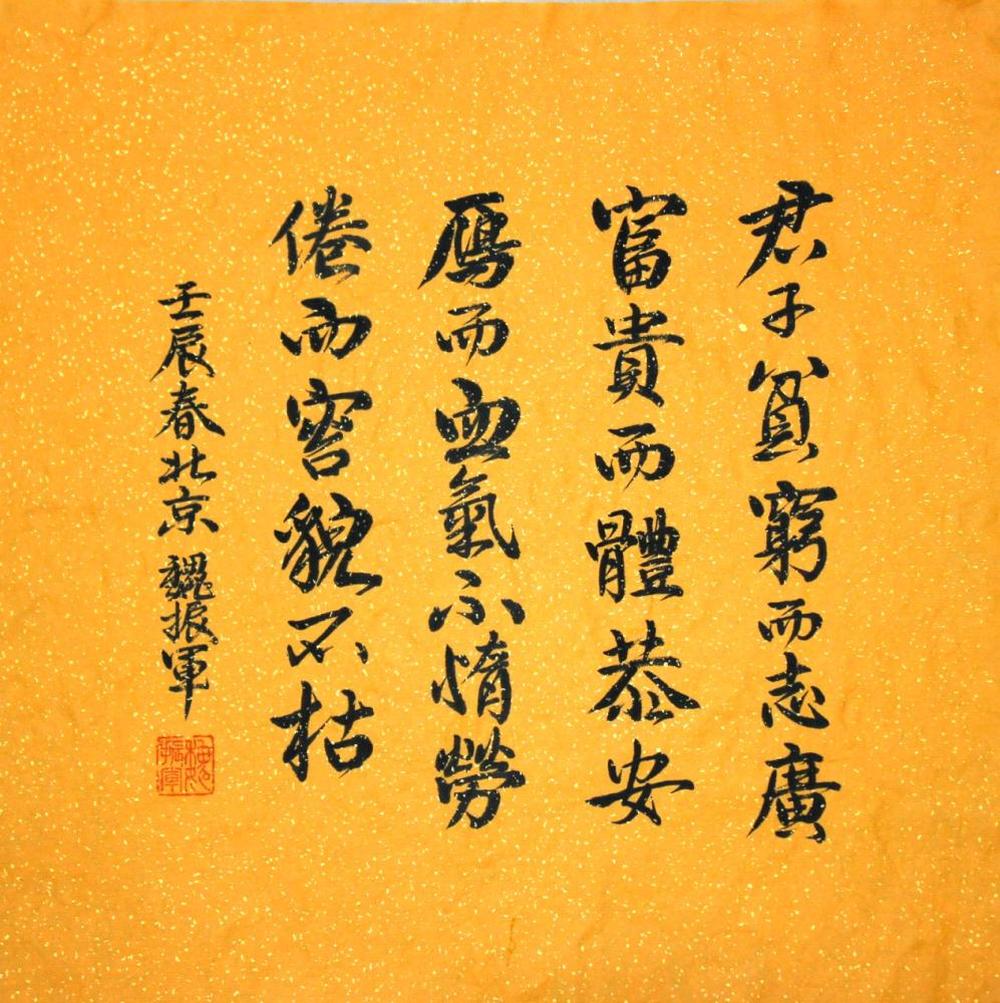 君子貧窮而志廣
富貴而體恭安
鴈而血氣不惰勞
倦而容貌不枯
壬辰春北京魏振軍